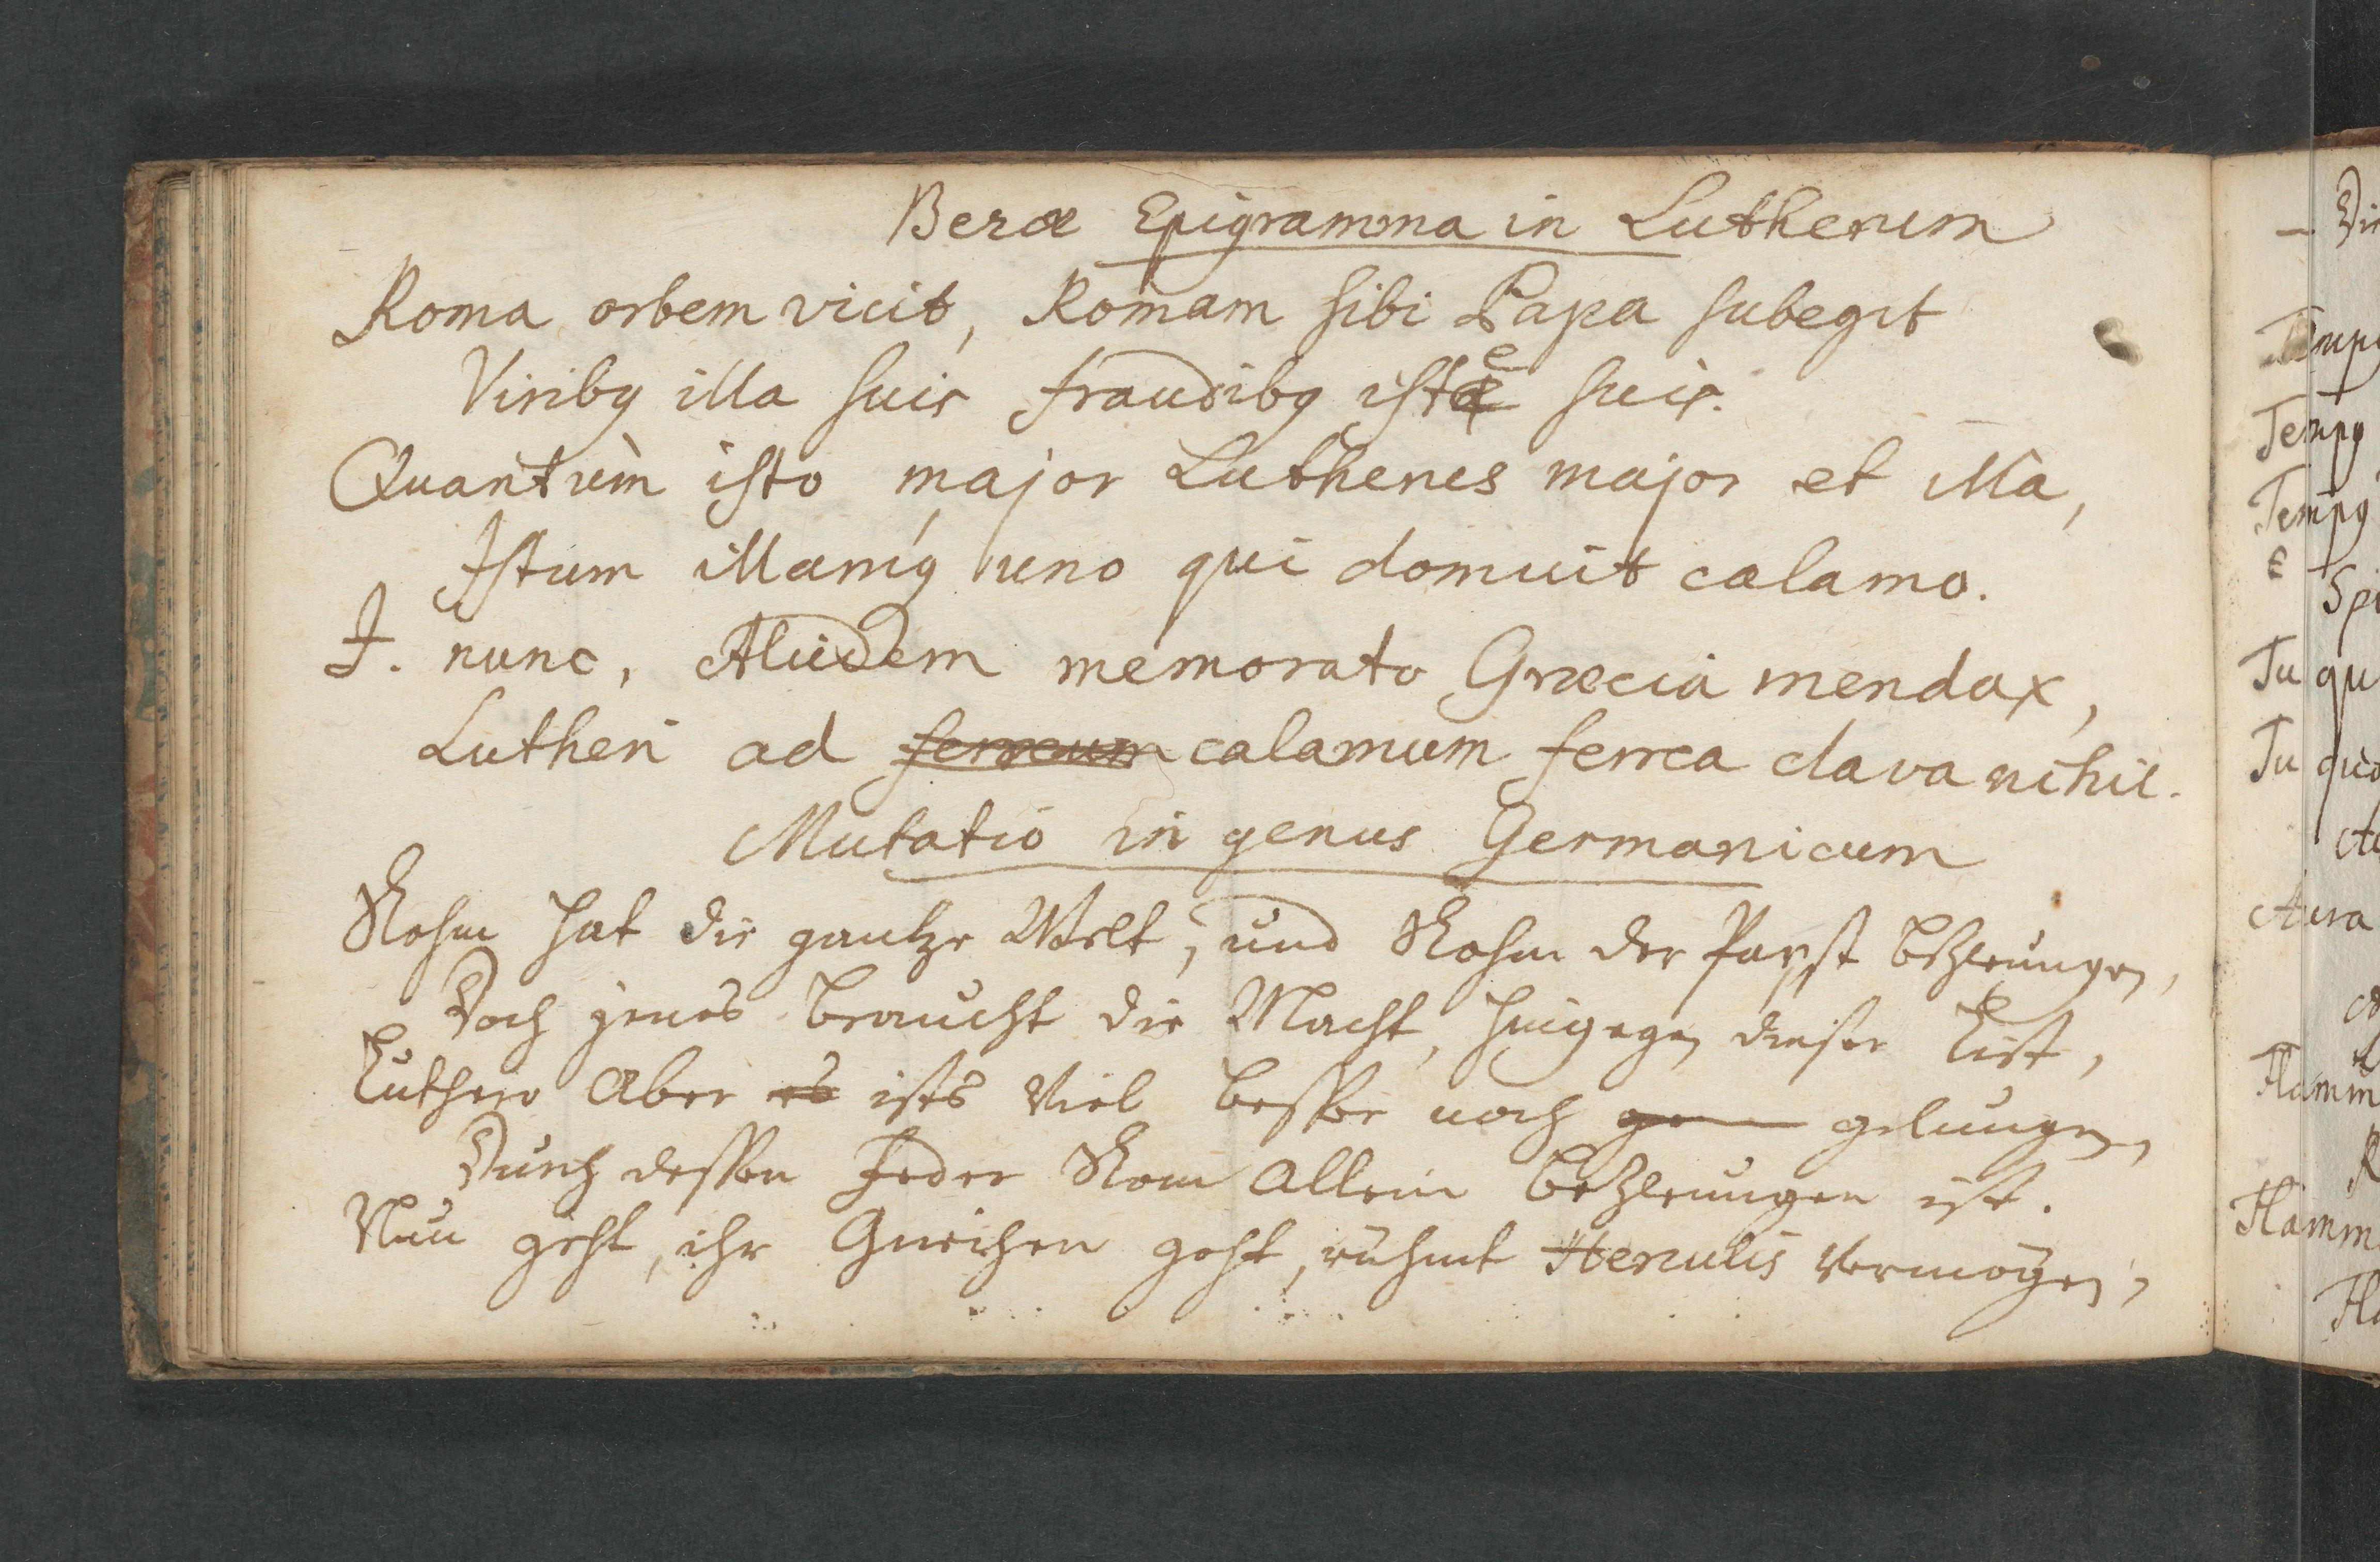 Bezæ Epigramma in Lutherum
Roma orbem vicit, Romam sibi Papa subegit
Viribq illa suis fraudibq iste suis.
Quantùm isto major Lutherus major et illa,
Istum illamq́ uno qui domuit calamo.
I. nunc, Aliudem memorato Græcia mendax,
Lutheri ad ferreum calamum ferrea clava nihil.
Mutatio in genus Germanicum
Rohm hat die gantze Welt, und Rohm der Papst bezwungen,
Doch jenes braucht die Macht, hingegen dieser List,
Luthero Aber es ists viel besser noch gelungen,
Durch dessen Feder Rom allein bezwungen ist.
Nun geht, ihr Griechen geht, rühmt Herculis Vermögen,
Tempq
Tempq
Tu qu
Tu quo
Aura
Flamm
Flamm